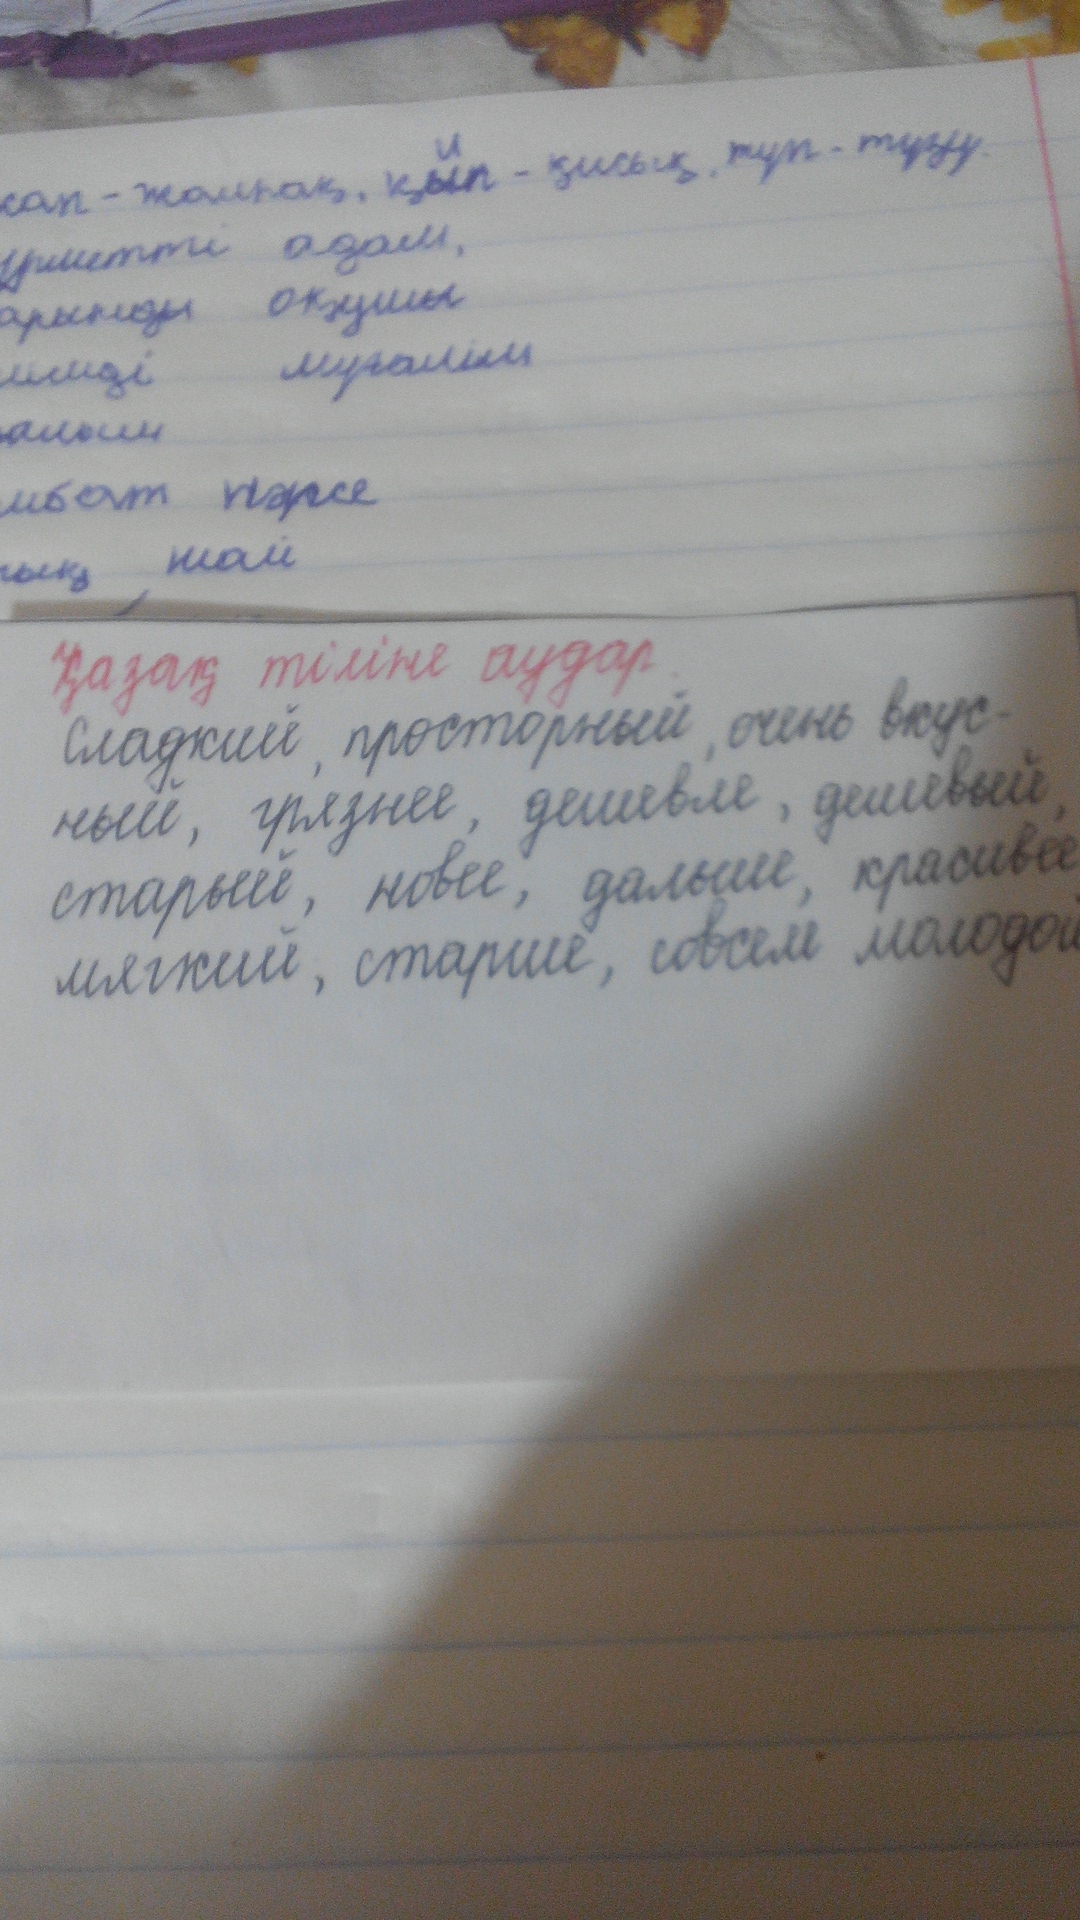 жалпақ, қып-қисық, түп-түзу.
й
адам,
оқушы
мұғалім
нәрсе
май
Қазақ тіліне аудар.
Сладкий, просторный, очень вкус-
ный, грязнее, дешевле, дешевый,
старый, новее, дальше, красивее
мягкий, старше, совсем молодой